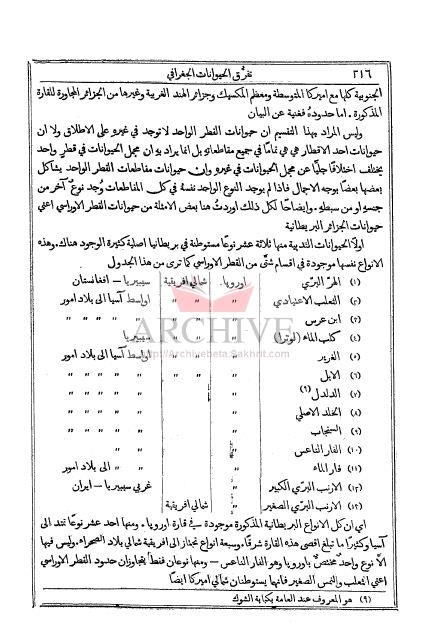 ٢١٦ تفرُّق الحيوانات الجغرافي
الجنوبية كلها مع اميركا المتوسطة ومعظم المكسيك وجزائر الهند الغربية وغيرها من الجزائر المجاورة للقارة
المذكورة . اما حدوده فغنية عن البيان
وليس المراد بهذا التقسيم ان حيوانات القطر الواحد لا توجد في غيره على الاطلاق ولا ان
حيوانات احد الاقطار هي هي تمامًا في جميع مقاطعاته بل انما يراد به ان مجمل الحيوانات في قطر واحد
يختلف اختلافًا جليًّا عن مجمل الحيوانات في غيره وان حيوانات مقاطعات القطر الواحد يشاكل
بعضها بعضًا بوجه الاجمال فاذا لم يوجد النوع الواحد نفسه في كل المقاطعات وُجد نوع آخر من
جنسه او من سبطه . وايضاحًا لكل ذلك اوردتُ هنا بعض الامثلة من حيوانات القطر الاوراسي اعني
حيوانات الجزائر البريطانية
اولًا الحيوانات الثديية منها ثلاثة عشر نوعًا مستوطنة في بريطانيا اصلية كثيرة الوجود هناك . وهذه
الانواع نفسها موجودة في اقسام شتَّى من القطر الاوراسي كما ترى من هذا الجدول
(١) الهرّ البرّي اوربا . شمالي افريقية سيبيريا – افغانستان
(٢) الثعلب الاعتيادي " " " اواسط آسيا الى بلاد امور
(٣) ابن عرس " " " " " " "
(٤) كلب الماء (لوترا) " " " سيبيريا
(٥) الغرير " اواسط آسيا الى بلاد امور
(٦) الابل " " " " " " "
(٧) الدلدل (٩) " " " " "
(٨) الخلد الاصلي " " " " "
(٩) السنجاب " " " " "
(١٠) الفار الناعس " " "
(١١) فار الماء " " " الى بلاد امور
(١٢) الارنب البرّي الكبير " غربي سيبيريا – ايران
(١٣) الارنب البرّي الصغير " شمالي افريقية
اي ان كل الانواع البريطانية المذكورة موجودة في قارة اوربا . ومنها احد عشر نوعًا تمتد الى
آسيا وكثيرًا ما تبلغ اقصى هذه القارة شرقًا . وسبعة انواع تجتاز الى افريقية شمالي بلاد الصحراء . وليس فيها
الَّا نوع واحد مختصٌّ باوربا وهو الفار الناعس – ومنها نوعان فقط يتجاوزان حدود القطر الاوراسي
اعني الثعلب والنمس الصغير فانها يستوطنان شمالي اميركا ايضًا
(٩) هو المعروف عند العامة بكبابة الشوك
ARCHIVE
http://Archivebeta.Sakhrit.com